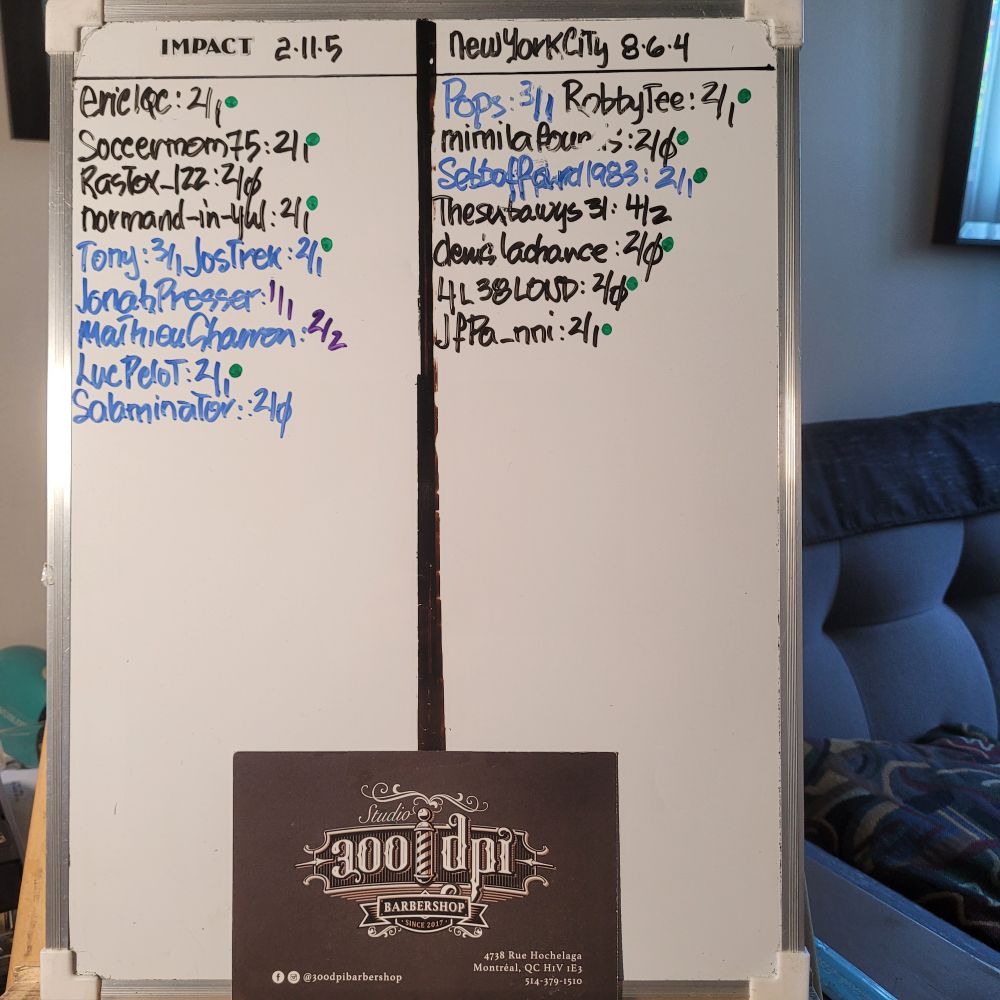 IMPACT 2-11-5
ericlqc: 2/1
Soccermom75: 2/1
RasTox_122: 2/ϕ
normand-in-yul: 2/1
Tony: 3/1 JosTrek: 2/1
JonahPresser: 1/1
MathieuCharron: 2/2
LucPeloT: 2/1
Salaminator: 2/ϕ
newYorkCiTy 8-6-4
Pops: 3/1 RobbyTee: 2/1
: 2/ϕ
1983: 2/1
31: 4/2
denislachance: 2/ϕ
4L38LOUD: 2/ϕ
JfPa_nni: 2/1
Studio
300 dpi
BARBERSHOP
SINCE 2017
4738 Rue Hochelaga
Montréal, QC H1V 1E3
514-379-1510
@300dpibarbershop